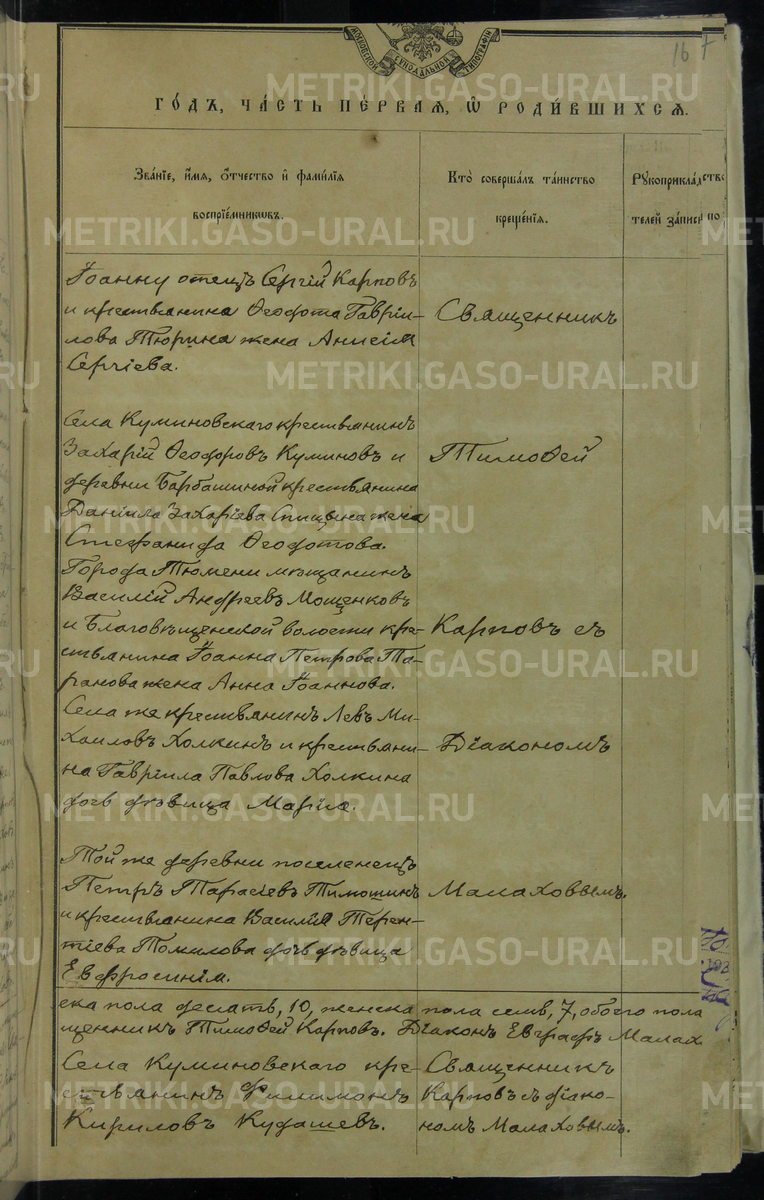 МОСКОВСКОЙ СѴНОДАЛЬНОЙ ТИПОГРАФІИ
16
METRIKI.GASO-URAL.RU
ГО́ДЪ, ЧА́СТЬ ПЕ́РВАѦ, Ѡ҆ РОДИ́ВШИХСѦ.
Зва́нїе, и҆́мѧ, ѻ҆́тчество и҆ фами́лїѧ
воспрїе́мникѡвъ.
Кто̀ соверша́лъ та́инство
креще́нїѧ.
Рꙋкоприкла́дство
телей за́писи по
Іоанну отецъ Сергій Карповъ
и крестьянина Ѳеодота Гаврі-
лова Тюрина жена Анисія
Сергіева.
Священникъ
Села Куминовскаго крестьянинъ
Захарій Ѳеодоровъ Куминовъ и
деревни Барбашиной крестьянина
Даніила Захаріева Спицына жена
Стефанида Ѳеодотова.
Тимоѳей
Города Тюмени мѣщанинъ
Василій Андреевъ Мощенковъ
и Благовѣщенской волости кре-
стьянина Іоанна Петрова Та-
ранова жена Анна Іоаннова.
Карповъ съ
Села же крестьянинъ Левъ Ми-
хаиловъ Холкинъ и крестьяни-
на Гавріила Павлова Холкина
дочь дѣвица Марія.
Діакономъ
Той же деревни поселенецъ
Петръ Тарасіевъ Тимошинъ
и крестьянина Василія Терен-
тіева Томилова дочь дѣвица
Евфросинія.
Малаховымъ.
ска пола десять, 10, женска пола семь, 7, обоего пола
щенникъ Тимоѳей Карповъ. Діаконъ Евграфъ Малах
Села Куминовскаго кре-
стьянинъ Филимонъ
Кириловъ Кудашевъ.
Священникъ
Карповъ съ діако-
номъ Малаховымъ.